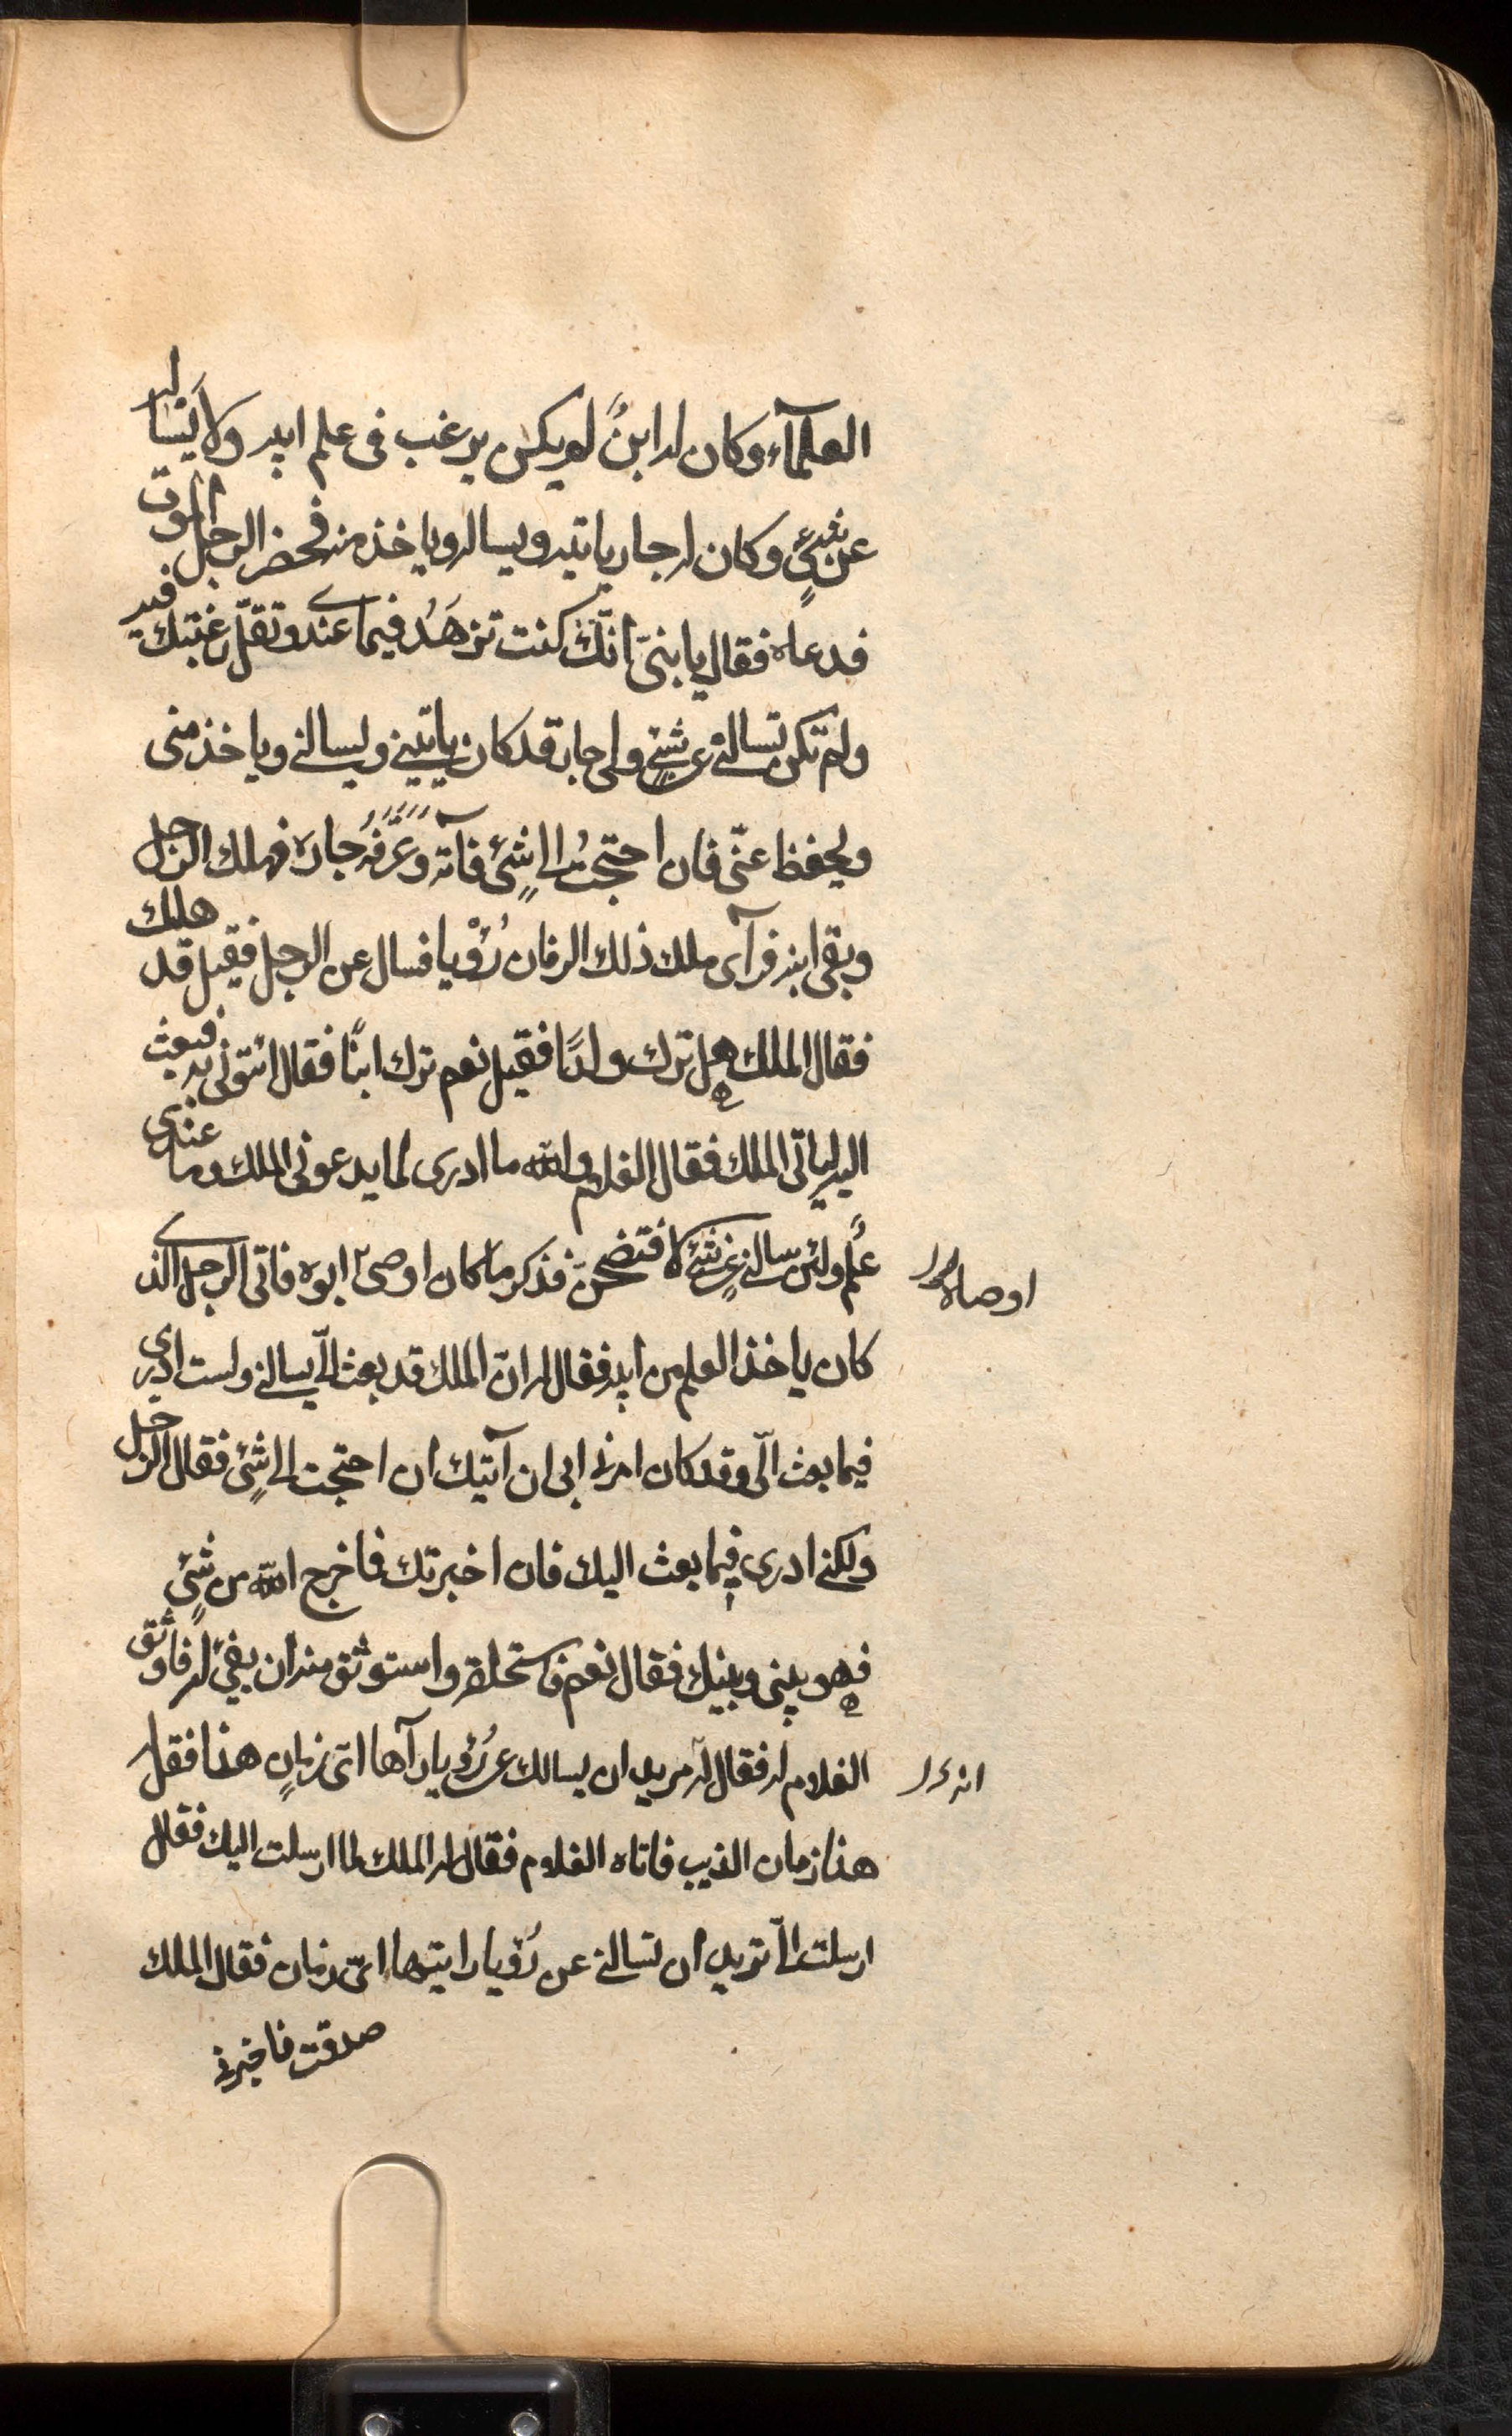 العلمآء وكان له ابنٌ لم يكن يرغب فى علم ابيه ولا يَسأله
عن شىءٍ وكان له جار ياتيه ويساله وياخذ منه فحضر الرجل الموت
فدعاه فقال يا بنىّ انّك كنت تزهَدُ فيما عندى وتقلّ رغبتك فيه
ولم تكن تسالنى عن شىءٍ ولى جار قد كان ياتينى ويسالنى وياخذ منى
ويحفظ عنّى فان احتجتُ الى شىءٍ فآته وعَرَّفَهُ جاره فهلك الرجل
وبقى ابنه فرآى ملك ذلك الزمان رُؤْيا فسال عن الرجل فقيل قد هلك
فقال الملك هل ترك ولدًا فقيل نعم ترك ابنًا فقال ائتونى به فبعث
اليه لياتى الملك فقال الغلام والله ما ادرى لما يدعونى الملك وما عندى
علمٌ ولئن سالنى عن شىءٍ لافتضحنّ فذكر ما كان اوصى ابوه فاتى الرجل الذى
اوصاه
كان ياخذ العلم من ابيه فقال له انّ الملك قد بعث الىّ يسالنى ولست ادرى
فيما بعث الىّ وقد كان امرنى ابى ان آتيك ان احتجت الى شىءٍ فقال الرجل
ولكنى ادرى فيما بعث اليك فان اخبرتك فاخرج الله من شىءٍ
فهو بينى وبينك فقال نعم فاستحلفه واستوثق منه ان يفىَ له فاوثق
الغلام له فقال له يريد ان يسالك عن رُؤيا رآها اىّ زمانٍ هذا فقل له
انه
هذا زمان الذيب فاتاه الغلام فقال له الملك لما ارسلت اليك فقال
ارسلت الىّ تريد ان تسالنى عن رُؤيا رايتها اىّ زمان فقال الملك
صدقت فاخبرنى